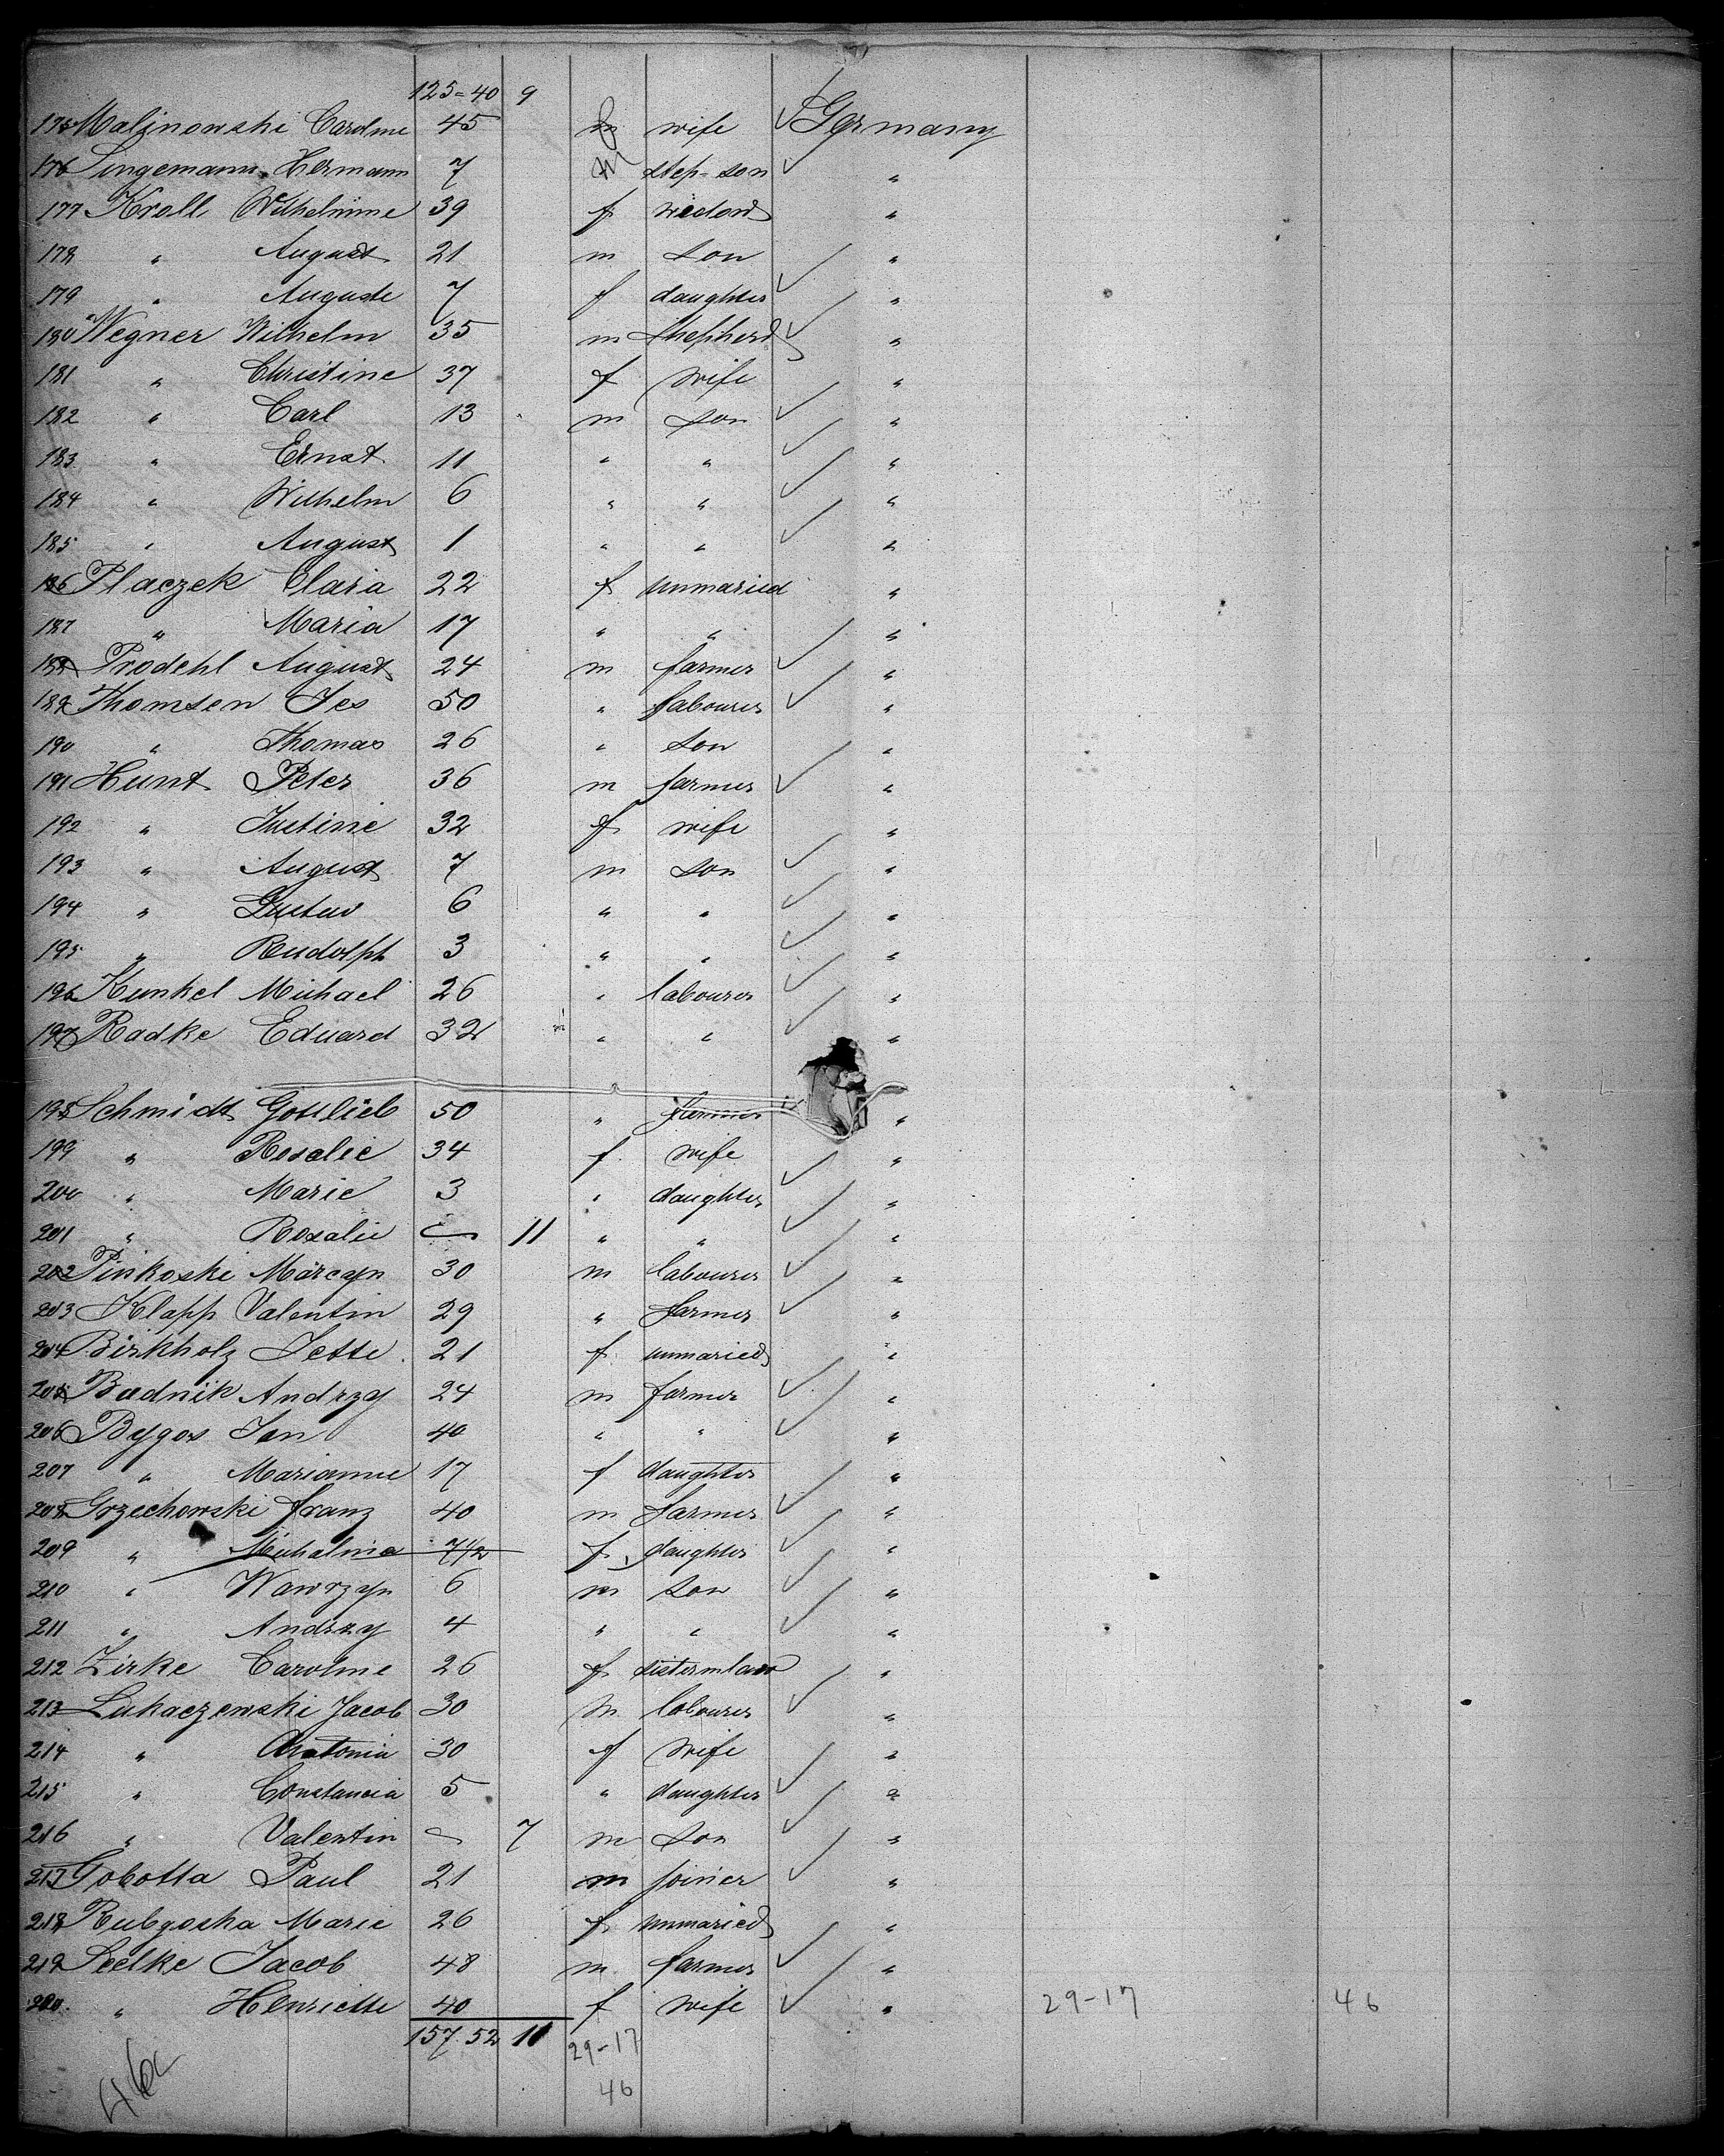 125=40 9
175 Malinowski Caroline 45 f wife Germany
176 Lingemann Hermann 7 m step-son "
177 Kroll Wilhelmine 39 f widow "
178 " August 21 m son "
179 " Auguste 7 f daughter "
180 Wegner Wilhelm 35 m shepherd "
181 " Christine 37 f wife "
182 " Carl 13 m son "
183 " Ernst 11 " " "
184 " Wilhelm 6 " " "
185 " August 1 " " "
186 Placzek Clara 22 f unmaried "
187 " Maria 17 " " "
188 Prodehl August 24 m farmer "
189 Thomsen Jes 50 " labourer "
190 " Thomas 26 " son "
191 Hunt Peter 36 m farmer "
192 " Justine 32 f wife "
193 " August 7 m son "
194 " Gustav 6 " " "
195 " Rudolph 3 " " "
196 Kunkel Michael 26 " labourer "
197 Radke Eduard 32 " " "
198 Schmidt Gottlieb 50 " farmer "
199 " Rosalie 34 f wife "
200 " Marie 3 " daughter "
201 " Rosalie 11 " " "
202 Pinkoski Marcyn 30 m labourer "
203 Klapp Valentin 29 " farmer "
204 Birkholz Jette 21 f unmaried "
205 Budnik Andrzy 24 m farmer "
206 Bygos Jan 40 " " "
207 " Marianne 17 f daughter "
208 Grzechowski Franz 40 m farmer "
209 " Michalina 7 1/2 f daughter "
210 " Wawrzyn 6 m son "
211 " Andrzy 4 " " "
212 Zirke Caroline 26 f sisterinlaw "
213 Lukaczewski Jacob 30 m labourer "
214 " Antonia 30 f wife "
215 " Constancia 5 " daughter "
216 " Valentin 7 m son "
217 Gobotta Paul 21 m joiner "
218 Rubgoska Marie 26 f unmaried "
219 Seelke Jacob 48 m farmer "
220 " Henriette 40 f wife " 29-17 46
157.52 11 29-17
46